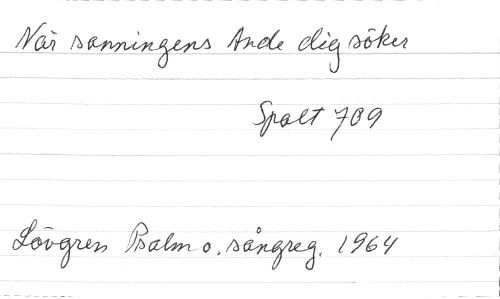 När sanningens Ande dig söker
Spalt 709
Lövgren Psalm o. sångreg. 1964